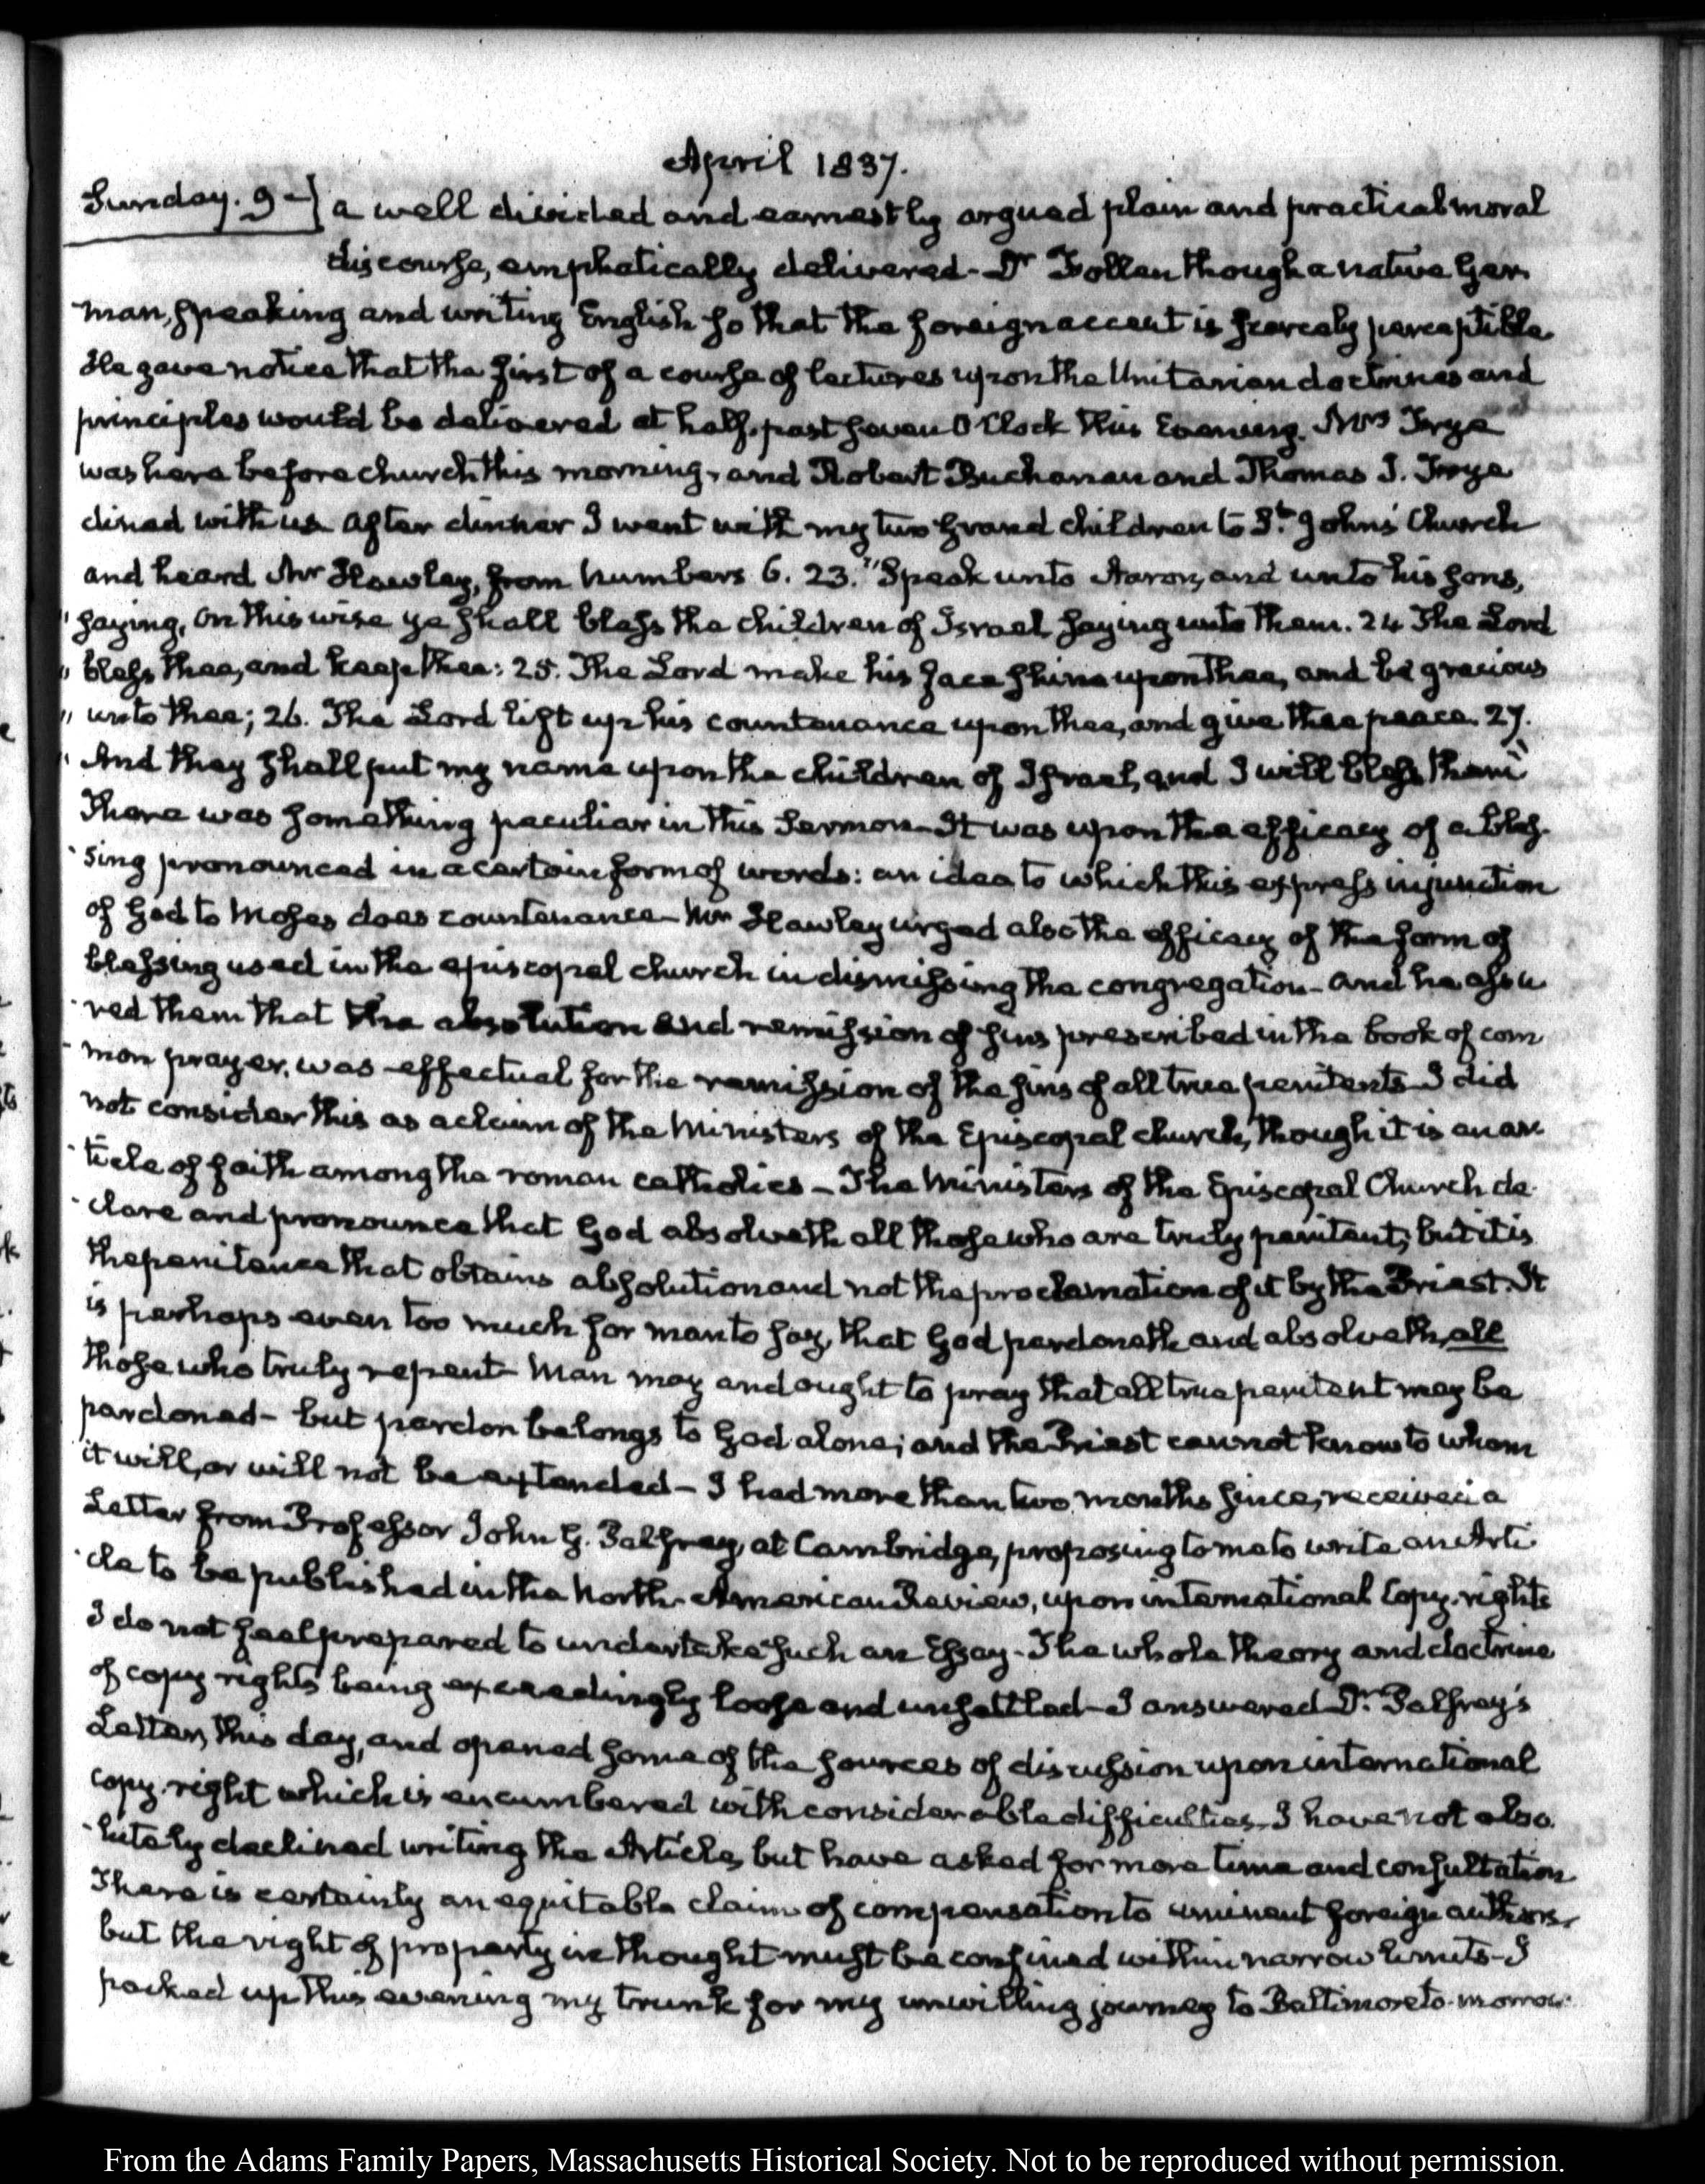 April 1837.
Sunday. 9-] a well divided and earnestly argued plain and practical moral
discourse, emphatically delivered - Dr Follen though a native Ger
-man, speaking and writing English so that the foreign accent is scarcely perceptible
He gave notice that the first of a course of lectures upon the Unitarian doctrines and
principles would be delivered at half past seven O'Clock this Evening. Mrs Frye
was here before church this morning, and Robert Buchanan and Thomas J. Frye
dined with us After dinner I went with my two Grand children to St. Johns' Church
and heard Mr Hawley, from Numbers 6. 23. "Speak unto Aaron, and unto his sons,
"saying, On this wise ye shall bless the children of Israel saying unto them. 24 The Lord
" bless thee, and keep thee: 25. The Lord make his face shine upon thee, and be gracious
" unto thee; 26. The Lord lift up his countenance upon thee, and give thee peace. 27.
" And they shall put my name upon the children of Israel, and I will bless them"
There was something peculiar in this Sermon - It was upon the efficacy of a bles-
-sing pronounced in a certain form of words: an idea to which this express injunction
of God to Moses does countenance - Mr Hawley urged also the efficacy of the form of
blessing used in the episcopal church in dismissing the congregation - and he assu
-red them that the absolution and remission of sins prescribed in the book of com
-mon prayer, was effectual for the remission of the sins of all true penitents - I did
not consider this as a claim of the Ministers of the Episcopal church, though it is an ar
-ticle of faith among the roman catholics - The Ministers of the Episcopal Church de-
-clare and pronounce that God absolveth all those who are truly penitent; but it is
the penitence that obtains absolution and not the proclamation of it by the Priest. It
is perhaps even too much for man to say, that God pardoneth and absolveth, all
those who truly repent - Man may and ought to pray that all true penitent may be
pardoned - but pardon belongs to God alone; and the Priest cannot know to whom
it will, or will not be extended - I had more than two months since, received a
Letter from Professor John G. Palfrey, at Cambridge, proposing to me to write an Arti-
-cle to be published in the North-American Review, upon international Copy-rights
I do not feel prepared to undertake such an Essay - The whole theory and doctrine
of copy rights being exceedingly loose and unsettled - I answered Dr. Palfrey's
Letter, this day, and opened some of the sources of discussion upon international
copy-right which is encumbered with considerable difficulties, I have not abso
-lutely declined writing the Article, but have asked for more time and consultation
There is certainly an equitable claim of compensation to eminent foreign authors,
but the right of property in thought must be confined within narrow limits - I
packed up this evening my trunk for my unwilling journey to Baltimore to-morrow.
From the Adams Family Papers, Massachusetts Historical Society. Not to be reproduced without permission.